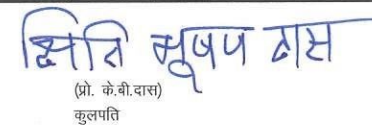 क्षिति भूषण दास
(प्रो. के.बी.दास)
कुलपति